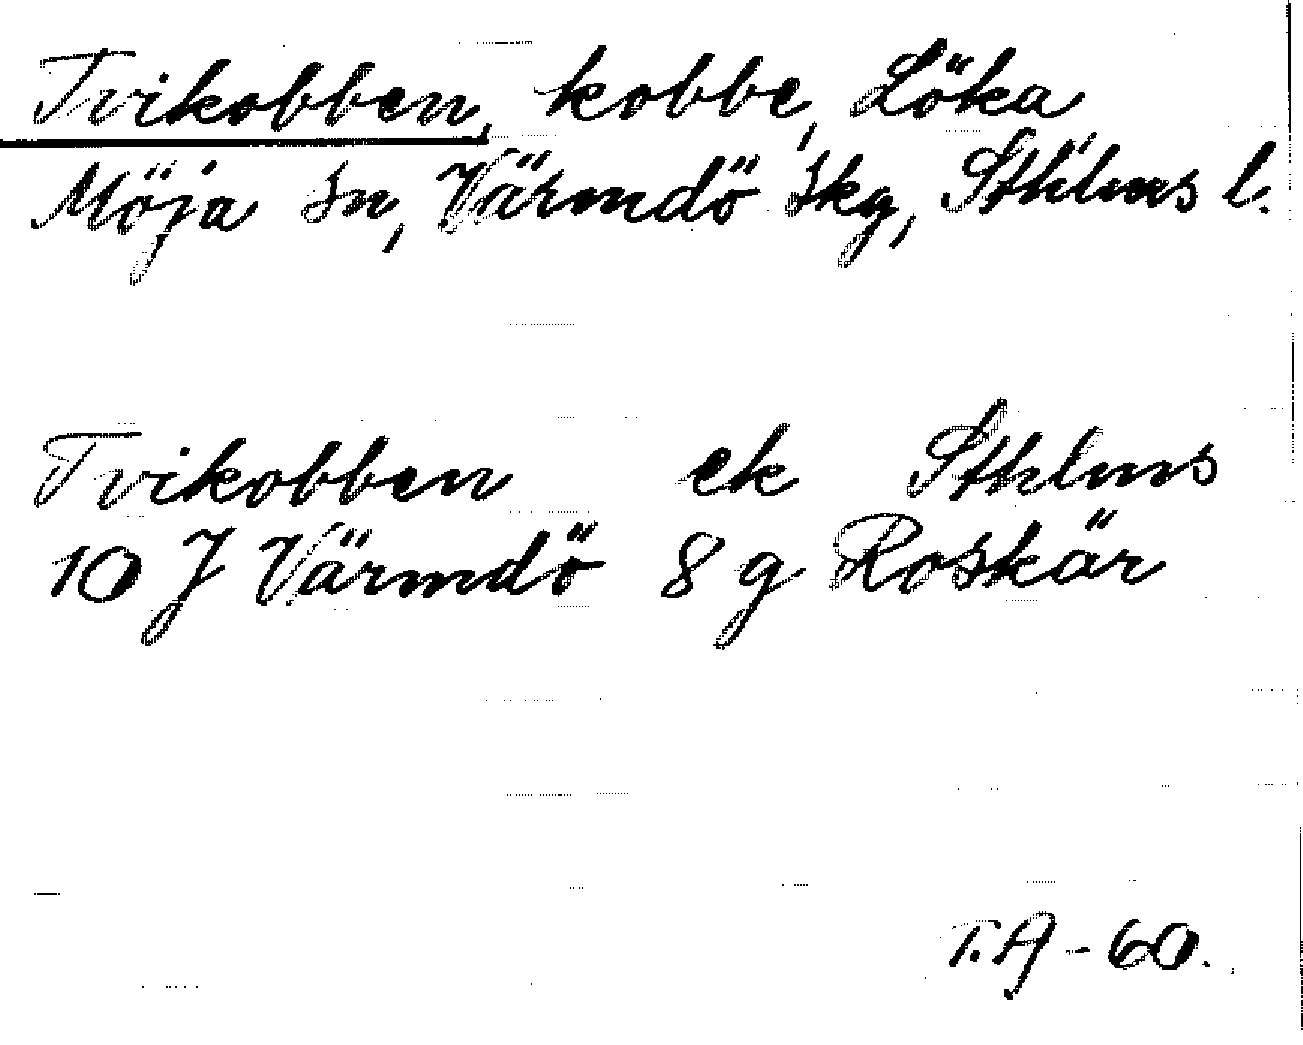 Tvikobben, kobbe, Löka
Möja sn, Värmdö skg, Sthlms l.
Tvikobben ek Sthlms
10 J Värmdö 8 g Roskär
T.A - 60.